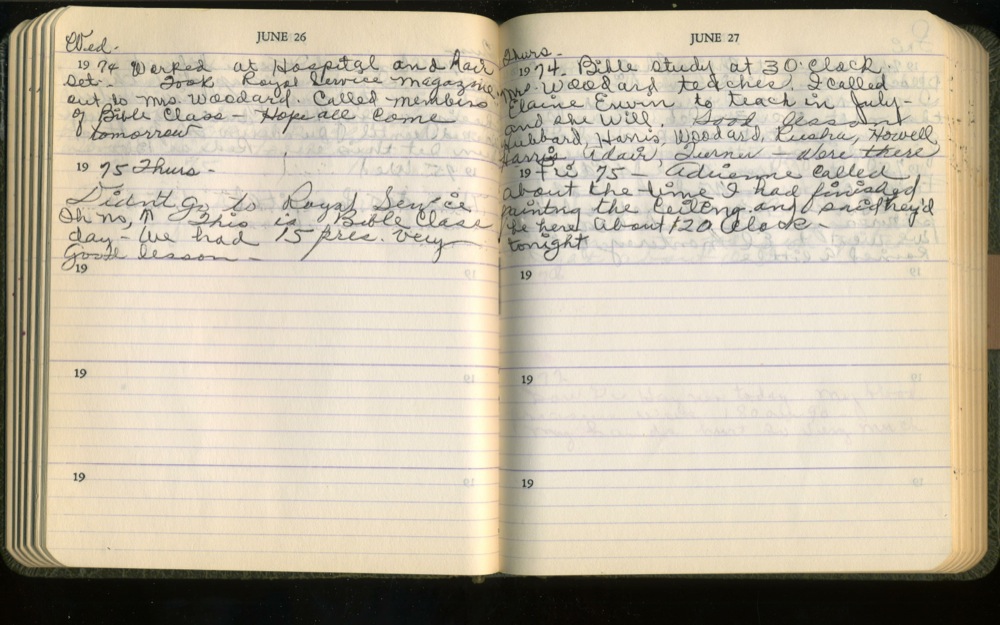 JUNE 26
Wed.
1974 Worked at Hospital and hair
set. Took Royal Service magazine
out to Mrs. Woodard. Called members
of Bible Class - Hope all come
tomorrow
1975 Thurs -
Didn't go to Royal Service
Oh no, ↑ This is Bible Class
day - We had 15 pres. Very
Good lesson -
19
19
19
JUNE 27
Thurs.
1974. Bible Study at 3 O'clock.
Mrs. Woodard teacher. I called
Elaine Ervin to teach in July -
and she will. Good lesson
Hubbard, Harris, Woodard, Howell
Harris, Adair, Turner - Were there
19 Fri 75 - Adrienne called
about the time I had finished
painting the ceiling and said they'd
be here about 12 O'clock -
tonight
19
19
19